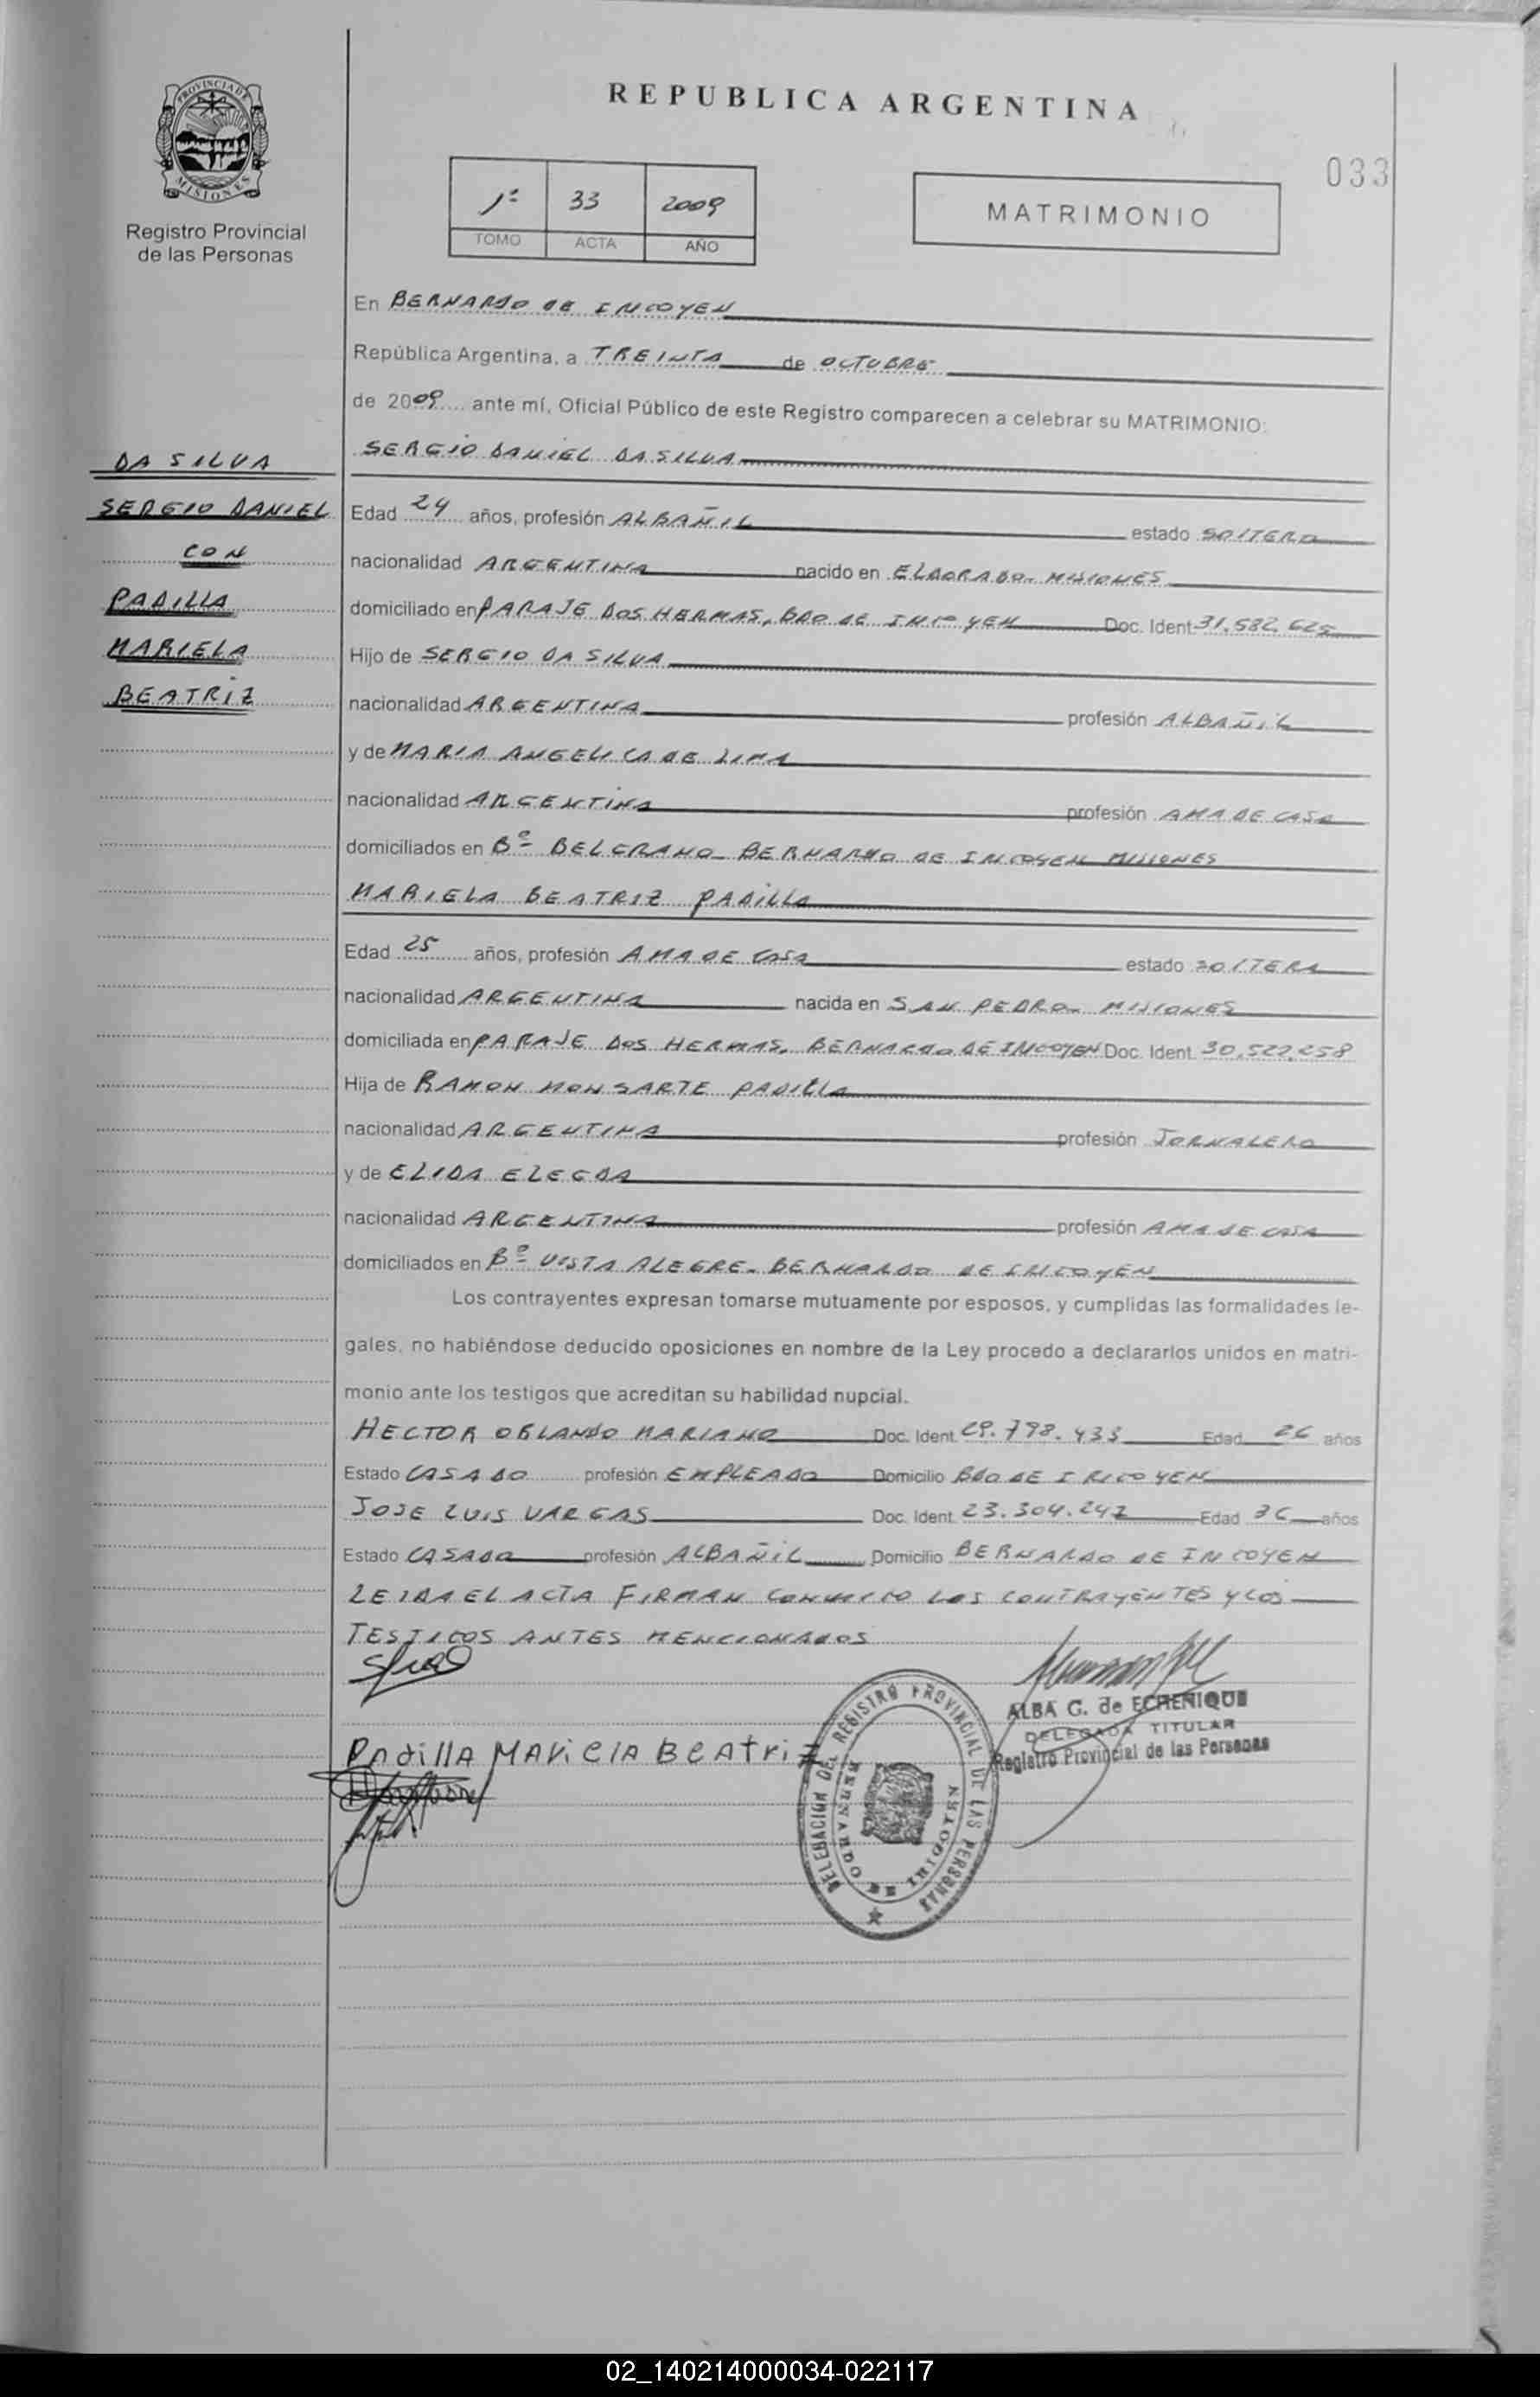 REPUBLICA ARGENTINA
PROVINCIA DE MISIONES
Registro Provincial
de las Personas
033
1º 33 2009
TOMO ACTA AÑO
MATRIMONIO
En BERNARDO DE IRIGOYEN
República Argentina, a TREINTA de OCTUBRE
de 2009 ante mí, Oficial Público de este Registro comparecen a celebrar su MATRIMONIO:
DA SILVA
SERGIO DANIEL
CON
PADILLA
MARIELA
BEATRIZ
SERGIO DANIEL DA SILVA
Edad 24 años, profesión ALBAÑIL estado SOLTERO
nacionalidad ARGENTINA nacido en ELDORADO - MISIONES
domiciliado en PARAJE DOS HERMAS, BDO DE IRIGOYEN Doc. Ident. 31.582.625
Hijo de SERGIO DA SILVA
nacionalidad ARGENTINA profesión ALBAÑIL
y de MARIA ANGELICA DE LIMA
nacionalidad ARGENTINA profesión AMA DE CASA
domiciliados en Bº BELGRANO - BERNARDO DE IRIGOYEN MISIONES
MARIELA BEATRIZ PADILLA
Edad 25 años, profesión AMA DE CASA estado SOLTERA
nacionalidad ARGENTINA nacida en SAN PEDRO - MISIONES
domiciliada en PARAJE DOS HERMAS, BERNARDO DE IRIGOYEN Doc. Ident. 30.522.258
Hija de RAMON MONSARTE PADILLA
nacionalidad ARGENTINA profesión JORNALERO
y de ELIDA
nacionalidad ARGENTINA profesión AMA DE CASA
domiciliados en Bº VISTA ALEGRE - BERNARDO DE IRIGOYEN
Los contrayentes expresan tomarse mutuamente por esposos, y cumplidas las formalidades le-
gales, no habiéndose deducido oposiciones en nombre de la Ley procedo a declararlos unidos en matri-
monio ante los testigos que acreditan su habilidad nupcial.
HECTOR ORLANDO MARIANO Doc. Ident. 29.798.433 Edad 26 años
Estado CASADO profesión EMPLEADO Domicilio BDO DE IRIGOYEN
JOSE LUIS VARGAS Doc. Ident. 23.304.247 Edad 36 años
Estado CASADO profesión ALBAÑIL Domicilio BERNARDO DE IRIGOYEN
LEIDA EL ACTA FIRMAN CONMIGO LOS CONTRAYENTES Y LOS
TESTIGOS ANTES MENCIONADOS
ALBA G. de ECHENIQUE
DELEGADA TITULAR
Registro Provincial de las Personas
PadillA MArielA BeAtriz
DELEGACION DEL REGISTRO PROVINCIAL DE LAS PERSONAS
BERNARDO DE IRIGOYEN
02_140214000034-022117